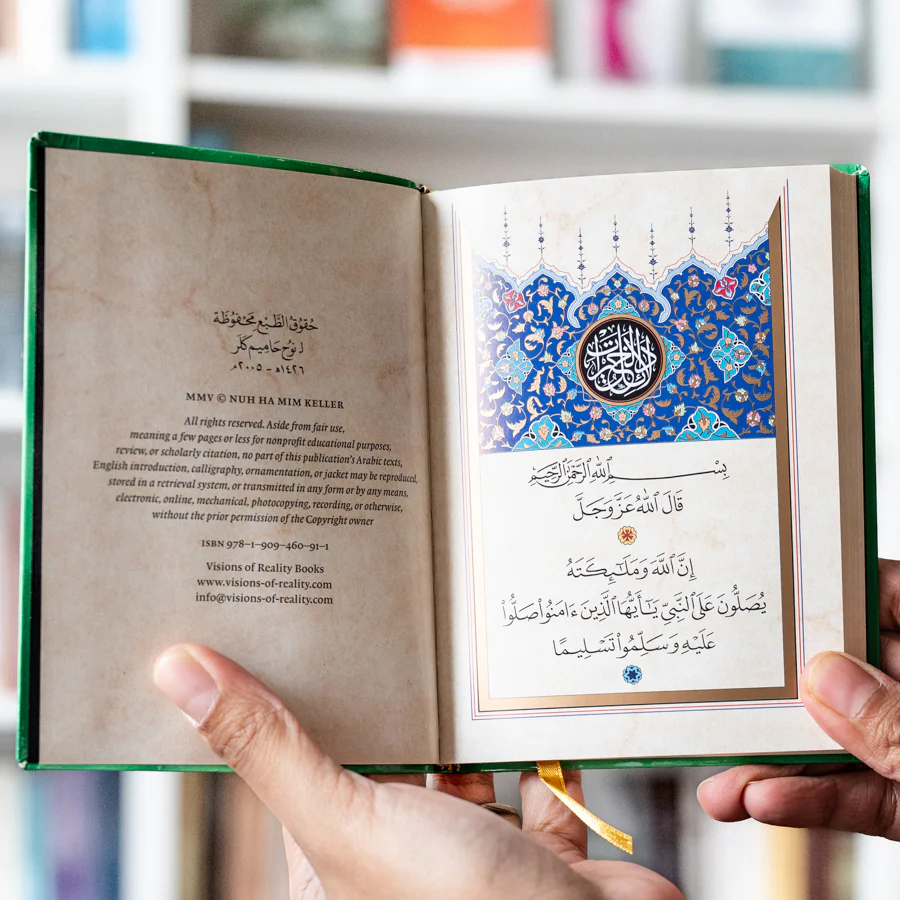 حُقُوقُ الطَّبْعِ مَحْفُوظَة
لـ نُوح حَامِيم كَلَر
١٤٢٦هـ - ٢٠٠٥م
MMV © NUH HA MIM KELLER
All rights reserved. Aside from fair use,
meaning a few pages or less for nonprofit educational purposes,
review, or scholarly citation, no part of this publication's Arabic texts,
English introduction, calligraphy, ornamentation, or jacket may be reproduced,
stored in a retrieval system, or transmitted in any form or by any means,
electronic, online, mechanical, photocopying, recording, or otherwise,
without the prior permission of the Copyright owner
ISBN 978–1–909–460–91–1
Visions of Reality Books
www.visions-of-reality.com
info@visions-of-reality.com
دلائل الخيرات
بِسْمِ ٱللَّهِ ٱلرَّحْمَٰنِ ٱلرَّحِيمِ
قَالَ ٱللَّهُ عَزَّ وَجَلَّ
إِنَّ ٱللَّهَ وَمَلَٰٓئِكَتَهُۥ
يُصَلُّونَ عَلَى ٱلنَّبِيِّ يَٰٓأَيُّهَا ٱلَّذِينَ ءَامَنُوا۟ صَلُّوا۟
عَلَيْهِ وَسَلِّمُوا۟ تَسْلِيمًا